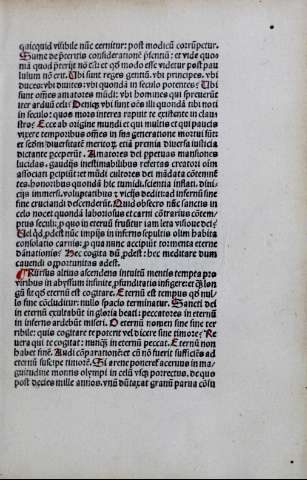 quicquid visibile nūc cernitur: post modicū corrūpetur.
Sume de p̄teritis considerationē p̄sentiū: et vide quō
oīa quōd periit nō
lulum nō erit. Ubi sunt reges gentiū. vbi principes. vbi
duces: vbi diuites: vbi quondā in seculo potentes? Ubi
sunt oēs amatores mūdi: vbi homines qui spreuerūt
iter arduū celi? Deniq; vbi sunt oēs illi quondā tibi noti
in seculo: quos mors interea rapuit te existente in claus
stro? Ecce ab origine mundi et qui multis et qui paucis
vixere temporibus oēs in sua generatione mortui sūt et
et scdm diuersitatē meritoꝝ. etiā premia diuersa iusticia
dictante ceperūt. Amatores dei perpetuas mansiones
lucidas. gaudijs inestimabilibus refertas creatori oīm
associati percipiūt: et mūdi cultores dei mādata cōtemnē
tes. honoribus quondā hic tumidi. scientia inflati. vinci
ijs immersi. voluptatibus et vicijs dediti: ad infernū sine
fine cruciandi descenderūt. Quid obsecro nūc sanctis in
celo nocet quondā laboriosus et carni cōtrarius cōtem̄
ptus seculi: p quo in eternū fruūtur iam leta visione dei?
Vel qd pdest nūc impijs in inferno sepultis olim habita
consolatio carnis: p qua nunc accipiūt tormenta eterne
dānationis? Hec cogita dū pdest: hec meditare dum
cauendi opportunitas adest.
¶ Rursus altius ascendens intuitū mentis tempta pro
viribus in abyssum infinite. pfunditatis infigere: et qlon
gū sit qd eternū est cogitare. Eternū est tempus qd nul
lo fine cōcluditur: nullo spacio terminatur. Sancti dei
in eternū exultabūt in gloria beati: peccatores in eternū
in inferno ardebūt miseri. O eternū nomen sine fine ter
ribile: quis cogitare te poterit vel dicere sine timore? Re
uera qui te cogitat: nunq̄ in eternū peccat. Eternū non
habet finē. Audi cōparationē: et cū nō fuerit sufficiēs ad
eternū suscipe timorē. Si arene poneret aceruus in ma
gnitudine montis olympi in celū vsq; porrectus. de quo
post decies mille annos. vnū dūtaxat granū parua cōsu